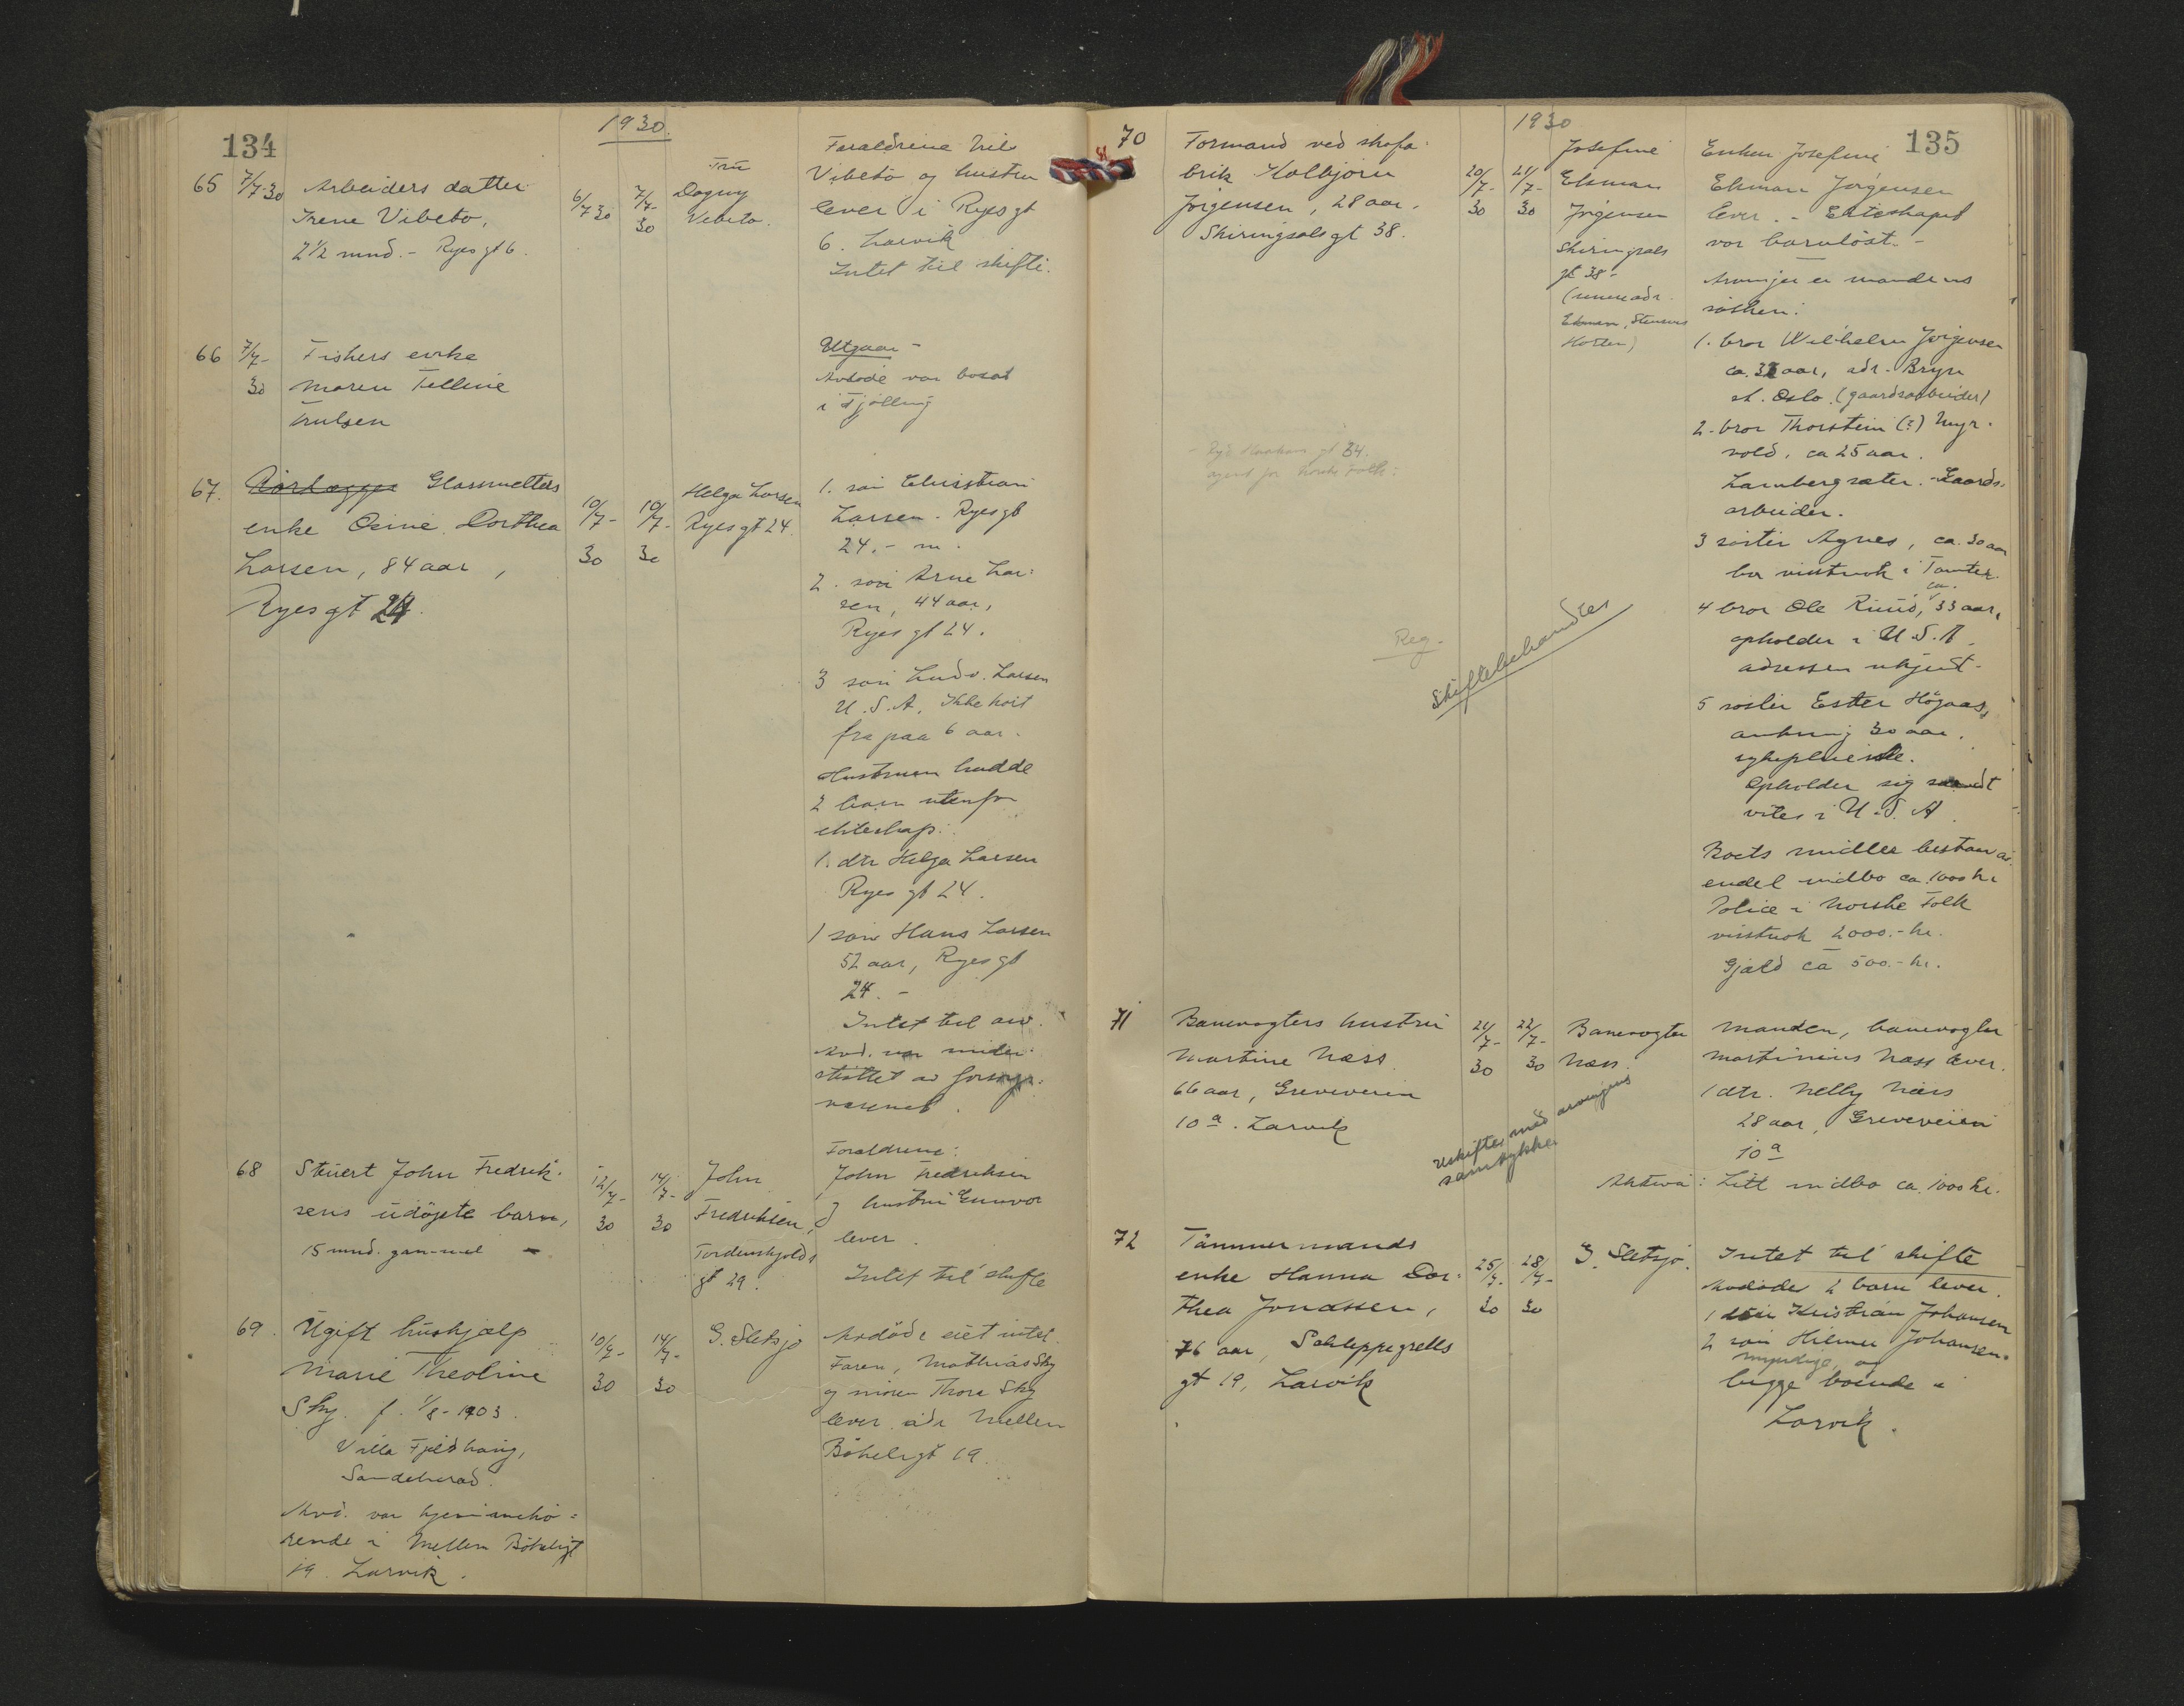 134
1930
65 7/7-30 Arbeiders datter
Irene Vibeto,
2 1/2 mnd. - Ryesgt 6.
6/7 30
7/7-30
Fru
Dagny
Vibeto.
Foraldrene Nils
Vibeto og hustru
lever i Ryesgt
6. Larvik
Intet til skifte.
66 7/7-30 Fiskers enke
Maren Telline
Trulsen
Utgaar -
Avdøde var bosat
i Tjølling
67. Glasmelters
enke Osine Dorthea
Larsen, 84 aar,
Ryesgt 24.
10/7-30
10/7-30
Helga Larsen
Ryesgt 24.
1. søn Christian
Larsen. Ryesgt
24. - m.
2. søn Arne Lar-
sen, 44 aar,
Ryesgt 24.
3 søn Ludv. Larsen
U.S.A. Ikke hørt
fra paa 6 aar.
Hustruen hadde
2 barn utenfor
ekteskap:
1. dtr Helga Larsen
Ryesgt 24.
1 søn Hans Larsen
52 aar, Ryesgt
24. -
Intet til arv.
Avd. var under-
støttet av forsorgs-
væsenet.
68 Stuert John Fredrik-
sens udøpte barn,
15 mnd. gammel
12/7-30
14/7-30
John
Fredriksen,
Tordenskjolds
gt 29.
Foraldrene:
John Fredriksen
og hustru Gunvor
lever.
Intet til skifte
69. Ugift hushjælp
Marie Theoline
Sky. f. 1/8-1903.
Villa Fjeldhaug,
Sandeherad.
Avd. var hjemmehø-
rende i Mellem Bøkeligt
19. Larvik.
10/7-30
14/7-30
G. Sletsjø
Avdøde eiet intet.
Faren, Mathias Sky
og moren Thora Sky
lever adr Mellem
Bøkeligt 19.
135
1930
70 Formand ved skofa-
brik Holbjørn
Jørgensen, 28 aar.
Skiringsalsgt 38.
20/7-30
21/7-30
Josefine
Ekman
Jørgensen
Skiringsals
gt 38-
Ekman,
Horten)
Enken Josefine
Ekman Jørgensen
lever. - Ekteskapet
var barnløst. -
Arvinger er mandens
søsken:
1. bror Wilhelm Jørgensen
ca. aar, adr. Bryn
st. Oslo. (gaardsarbeider)
2. bror Thorstein (?) Myr-
vold, ca 25 aar.
Lambergsæter. Gaards-
arbeider.
3 søster Agnes, ca. 30 aar
bor visstnok i Tomter.
4 bror Ole Ruud, ca. 33 aar,
opholder i U.S.A.
adressen ukjent.
5 søster Ester Høgaas,
omkring 30 aar.
sykepleierske.
Opholder sig saavidt
vites i U.S.A.
Boets midler bestaar av
endel indbo ca. 1000 kr
Police i Norske Folk
visstnok 2000.- kr.
Gjæld ca 500.- kr.
Haakons gt 34.
agent for Norske Folk:
Reg.
Skiftebehandles
71 Banevogters hustru
Martine Næss
66 aar, Greveveien
10 a. Larvik
21/7-30
22/7-30
Banevogter
Næss.
Uskiftet med arvingens
samtykke
Manden, banevogter
Martinius Næss lever.
1 dtr. Nelly Næss
28 aar, Greveveien
10 a
Aktiva: Litt indbo ca. 1000 kr.
72 Tømmermands
enke Hanna Dor-
thea Jonassen,
76 aar, Schleppegrells
gt 19, Larvik
25/7-30
28/7-30
G. Sletsjø.
Intet til skifte
Avdøde 2 barn lever.
1 søn Kristian Johansen
2 søn Hilmer Johansen.
myndige, og
begge boende i
Larvik.